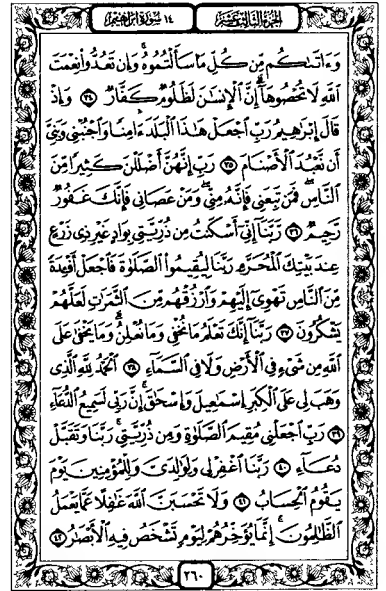 الجزء الثالث عشر
١٤ سورة إبراهيم
وَءَاتَىٰكُم مِّن كُلِّ مَا سَأَلْتُمُوهُ وَإِن تَعُدُّوا۟ نِعْمَتَ
ٱللَّهِ لَا تُحْصُوهَآ إِنَّ ٱلْإِنسَٰنَ لَظَلُومٌ كَفَّارٌ ٣٤ وَإِذْ
قَالَ إِبْرَٰهِيمُ رَبِّ ٱجْعَلْ هَٰذَا ٱلْبَلَدَ ءَامِنًا وَٱجْنُبْنِى وَبَنِىَّ
أَن نَّعْبُدَ ٱلْأَصْنَامَ ٣٥ رَبِّ إِنَّهُنَّ أَضْلَلْنَ كَثِيرًا مِّنَ
ٱلنَّاسِ فَمَن تَبِعَنِى فَإِنَّهُۥ مِنِّى وَمَنْ عَصَانِى فَإِنَّكَ غَفُورٌ
رَّحِيمٌ ٣٦ رَّبَّنَآ إِنِّىٓ أَسْكَنتُ مِن ذُرِّيَّتِى بِوَادٍ غَيْرِ ذِى زَرْعٍ
عِندَ بَيْتِكَ ٱلْمُحَرَّمِ رَبَّنَا لِيُقِيمُوا۟ ٱلصَّلَوٰةَ فَٱجْعَلْ أَفْـِٔدَةً
مِّنَ ٱلنَّاسِ تَهْوِىٓ إِلَيْهِمْ وَٱرْزُقْهُم مِّنَ ٱلثَّمَرَٰتِ لَعَلَّهُمْ
يَشْكُرُونَ ٣٧ رَبَّنَآ إِنَّكَ تَعْلَمُ مَا نُخْفِى وَمَا نُعْلِنُ وَمَا يَخْفَىٰ عَلَى
ٱللَّهِ مِن شَىْءٍ فِى ٱلْأَرْضِ وَلَا فِى ٱلسَّمَآءِ ٣٨ ٱلْحَمْدُ لِلَّهِ ٱلَّذِى
وَهَبَ لِى عَلَى ٱلْكِبَرِ إِسْمَٰعِيلَ وَإِسْحَٰقَ إِنَّ رَبِّى لَسَمِيعُ ٱلدُّعَآءِ
٣٩ رَبِّ ٱجْعَلْنِى مُقِيمَ ٱلصَّلَوٰةِ وَمِن ذُرِّيَّتِى رَبَّنَا وَتَقَبَّلْ
دُعَآءِ ٤٠ رَبَّنَا ٱغْفِرْ لِى وَلِوَٰلِدَىَّ وَلِلْمُؤْمِنِينَ يَوْمَ
يَقُومُ ٱلْحِسَابُ ٤١ وَلَا تَحْسَبَنَّ ٱللَّهَ غَٰفِلًا عَمَّا يَعْمَلُ
ٱلظَّٰلِمُونَ إِنَّمَا يُؤَخِّرُهُمْ لِيَوْمٍ تَشْخَصُ فِيهِ ٱلْأَبْصَٰرُ ٤٢
٢٦٠